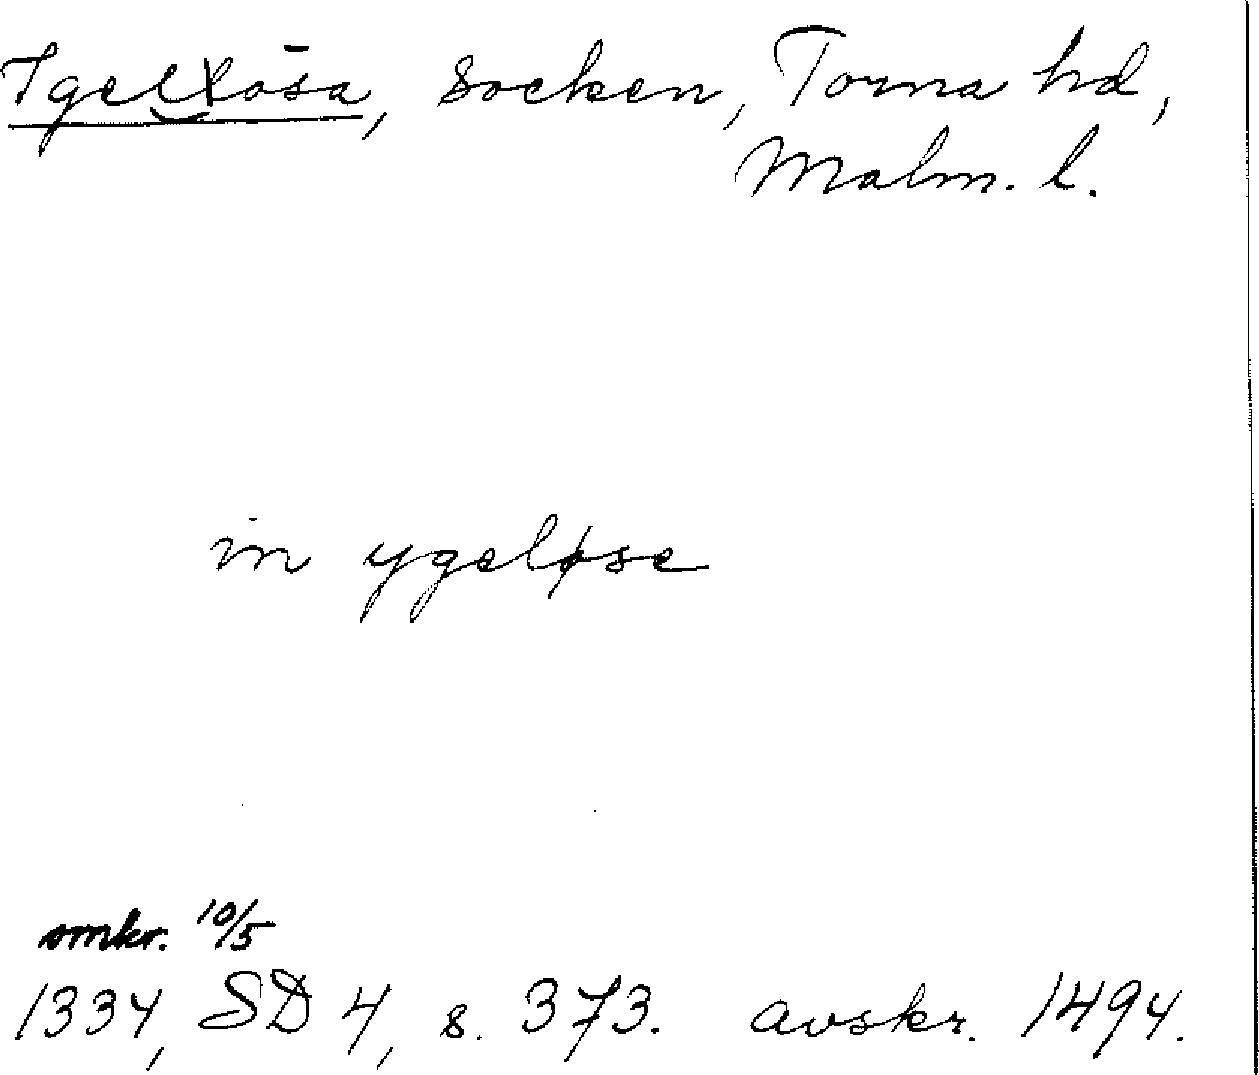 Igelösa, socken, Torna hd,
Malm. l.
in ygeløse
omkr. 10/5
1334, SD 4, s. 373. avskr. 1494.